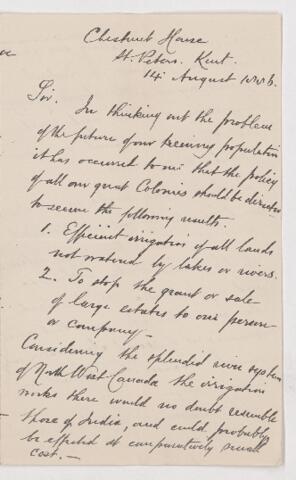 Chestnut House
St. Peters. Kent.
14 August
Sir. In thinking out the problem
of the future of our teeming population
it has occurred to me that the policy
of all our great Colonies should be directed
to secure the following results.
1. Efficient irrigation of all lands
not watered by lakes or rivers.
2. To stop the grant or sale
of large estates to one person
or company —
Considering the splendid river system
of North West Canada the irrigation
works there would no doubt resemble
those of India, and could probably
be effected at comparatively small
cost. —